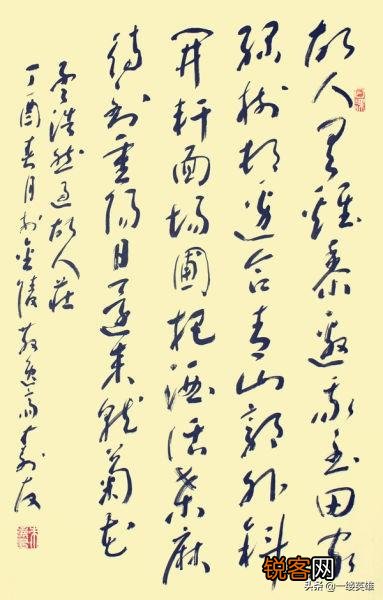 故人具雞黍邀我至田家
綠樹村邊合青山郭外斜
開軒面場圃把酒話桑麻
待到重陽日還來就菊花
孟浩然過故人莊
丁酉春月於金陵
锐客网
头条 @一线英雄